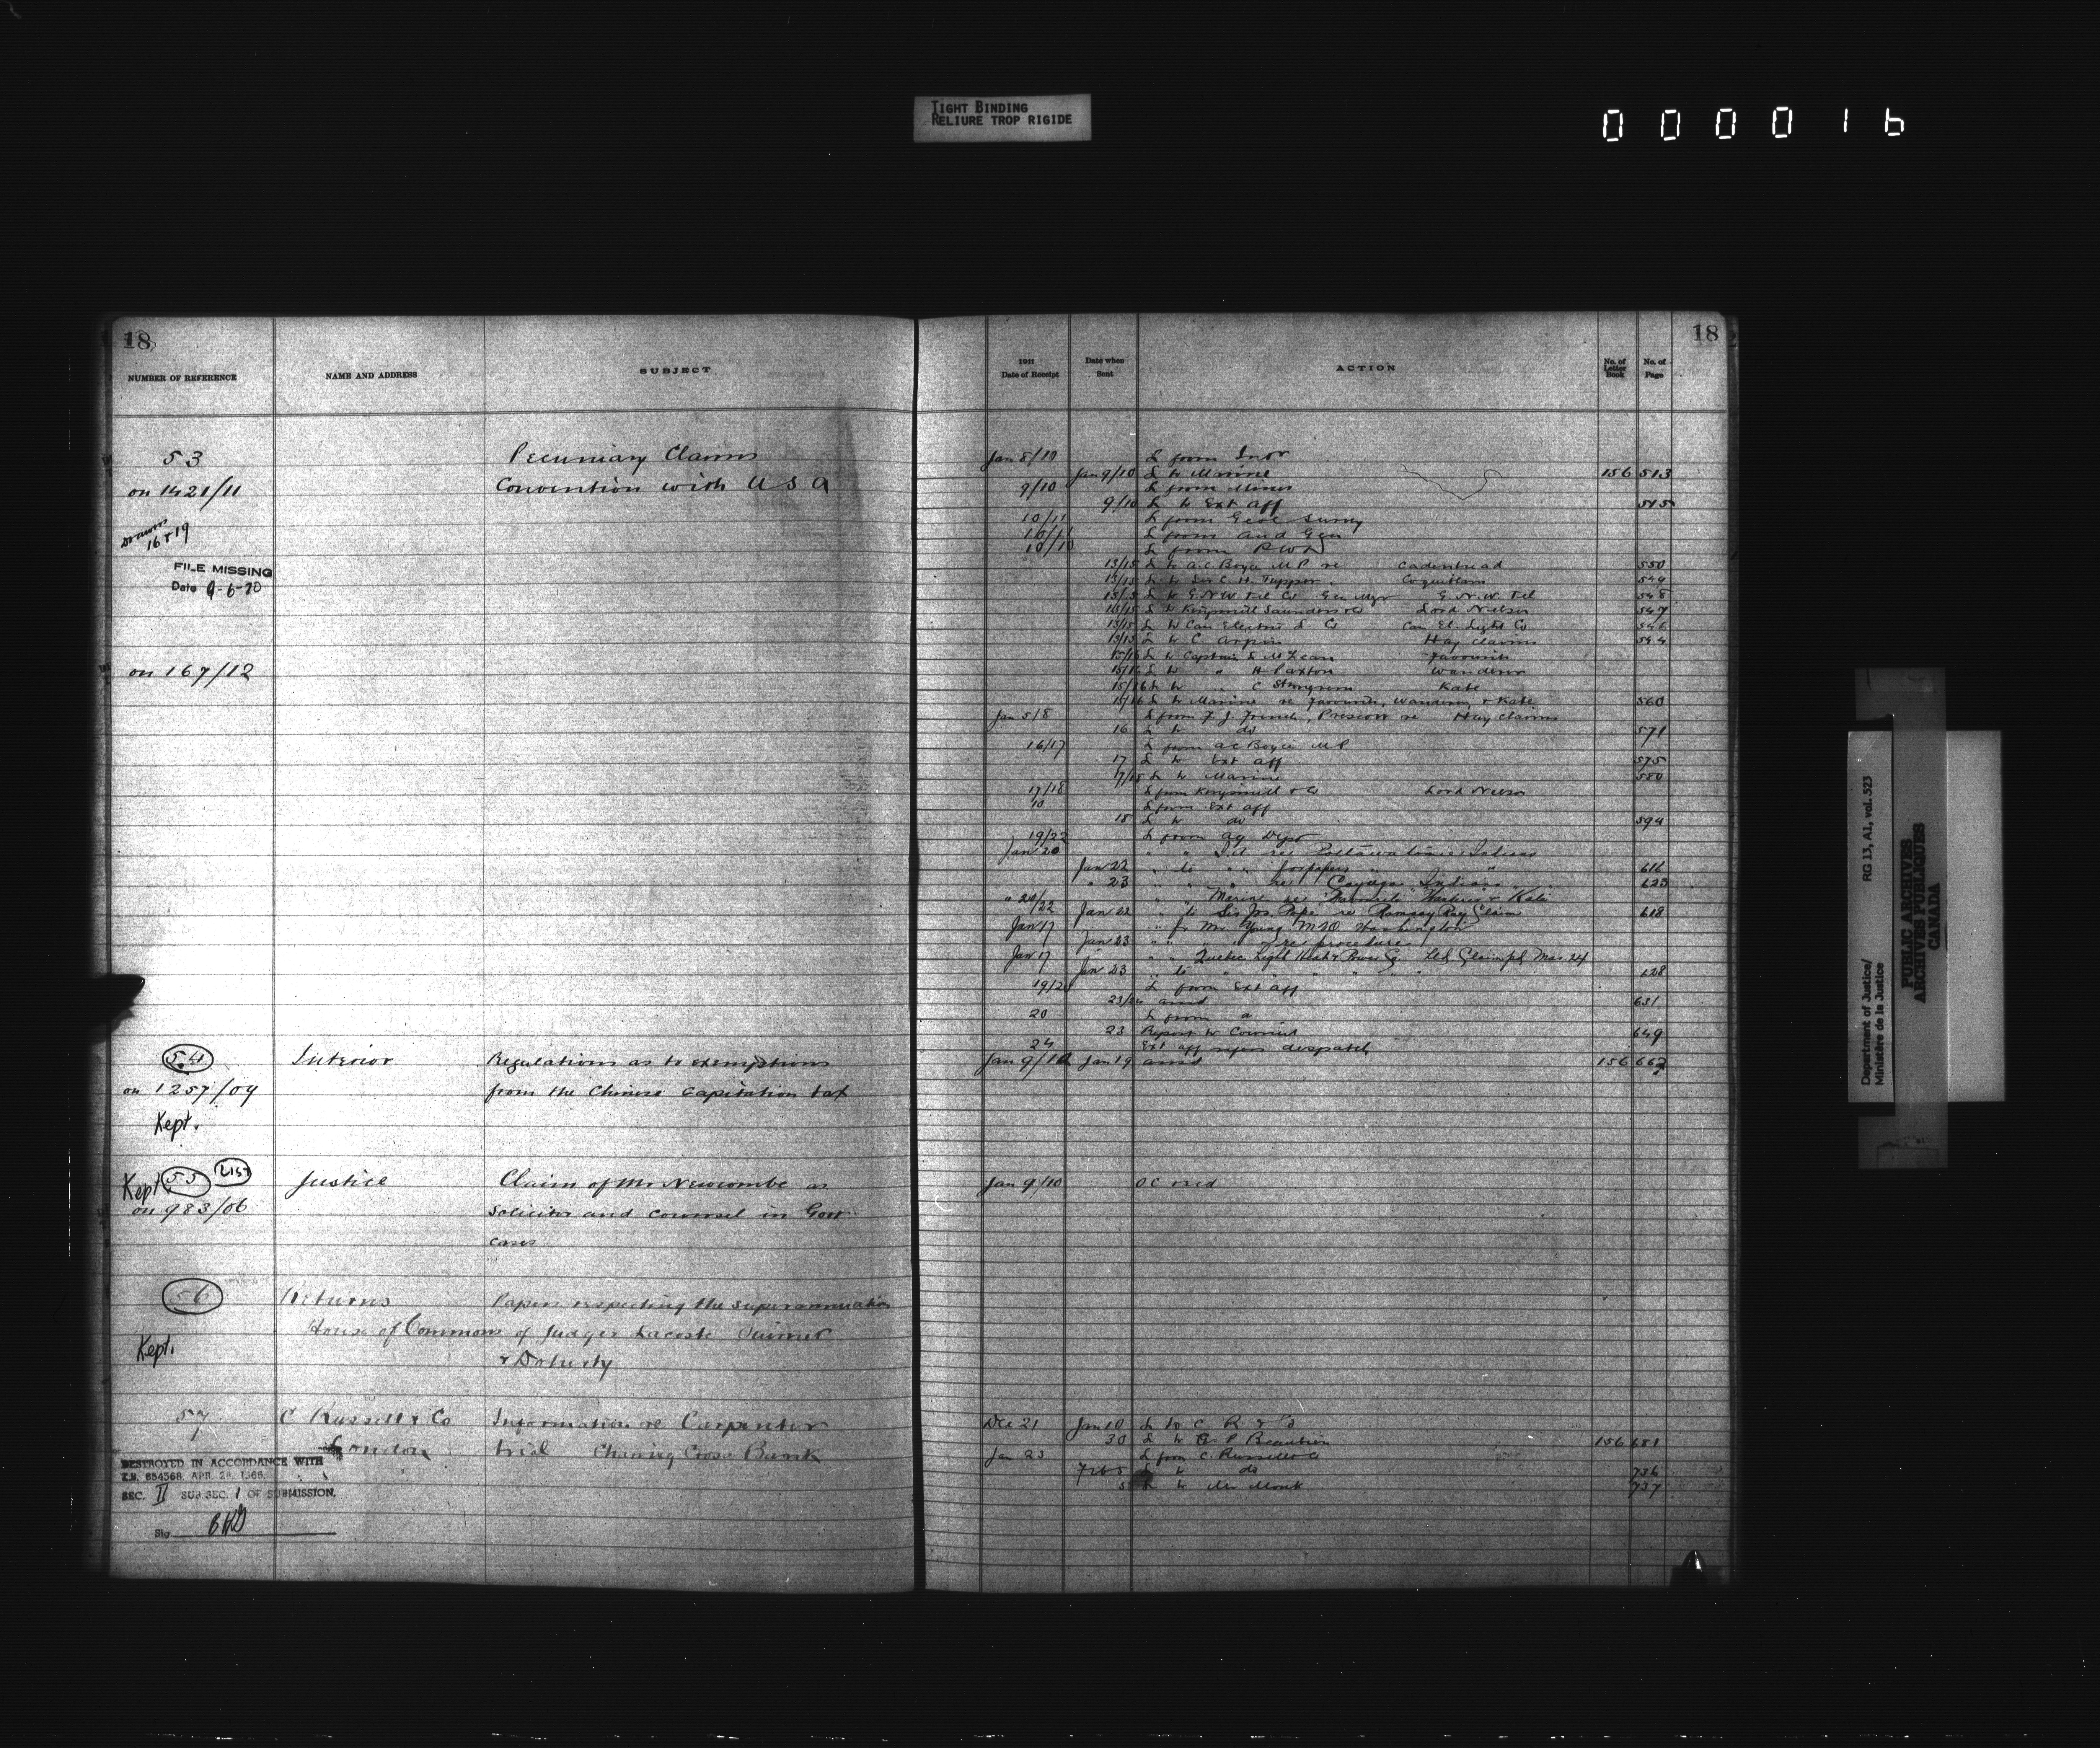 TIGHT BINDING
RELIURE TROP RIGIDE
000016
18
NUMBER OF REFERENCE
NAME AND ADDRESS
SUBJECT
53
on 1421/11
16 & 19
FILE MISSING
Date 9-6-70
on 167/12
Pecuniary Claims
Convention with U S A
54
on 1257/09
Kept.
Interior
Regulations as to exemptions
from the Chinese Capitation tax
Kept 55 LIST
on 983/06
Justice
Claim of Mr Newcombe as
Solicitor and counsel in Govt
cases
56
Kept.
Returns
House of Commons
Papers respecting the superannuation
of Judges Lacoste Ouimet
& Doherty
57
C Russell & Co
London
Information re Carpenter
trial Charing Cross Bank
DESTROYED IN ACCORDANCE WITH
T.B. 654568, APR. 28, 1966.
SEC. II SUB SEC. 1 OF SUBMISSION.
Sig
18
1911
Date of Receipt
Date when
Sent
ACTION
No. of
Letter
Book
No. of
Page
Jan 8/10 L from
Jan 9/10 L to Marine 156 513
9/10 L from Mines
9/10 L to Ext Aff 515
10/11 L from Geol Survey
10/11 L from Aud Gen
10/10 L from P W D
13/15 L to A. C. Boyce M P re 550
13/15 L to Sir C. H. Tupper Coquitlam 549
13/15 L to G. N. W. Tel Co Gen Mgr G. N. W. Tel 548
13/15 L to Saunders & Co Lord Nelson 547
13/15 L to Can Electric L Co Can El. Light Co 546
13/15 L to C. Arpin Hay claims 544
15/16 L to Captain McLean Favourite
15/16 L to " H Paxton Wanderer
15/16 L to " C Kate
15/16 L to Marine re Favourite, Wanderer & Kate 560
Jan 5/8 L from F. J. French, Prescott re Hay claims
16 L to do 571
16/17 L from A C Boyce M P
17 L to Ext Aff 575
17/18 L to Marine 580
17/18 L from & Co Lord Nelson
10 L from Ext Aff
18 L to do 594
19/22 L from Ag Dept
Jan 20 " " I. A re Pottawatomie Indians
Jan 22 " to " for papers " " 616
" 23 " " " re Cayuga Indians 623
" 20/22 " " Marine re "Favourite" Wanderer & Kate
Jan 22 " to Sir Jos. Pope re Ramsey Claim 618
Jan 17 " fr Mr Young Washington
Jan 23 " " " re procedure
Jan 17 " " Quebec Light Heat & Power Co. Ltd Claim
Jan 23 " to " " " " 628
L from Ext Aff
23/24 ansd 631
20 L from a
23 Report to Council 649
24 Ext Aff refers despatch
Jan 9/10 Jan 19 ansd 156 662
Jan 9/10 O C recd
Dec 21 Jan 10 L to C. R & Co
30 L to P Beaubien 156 681
Jan 23 L from C. Russell & Co
Feb 5 L to do 736
5 L to Mr Monk 737
Department of Justice/
Ministère de la Justice
RG 13, A1, vol. 523
PUBLIC ARCHIVES
ARCHIVES PUBLIQUES
CANADA